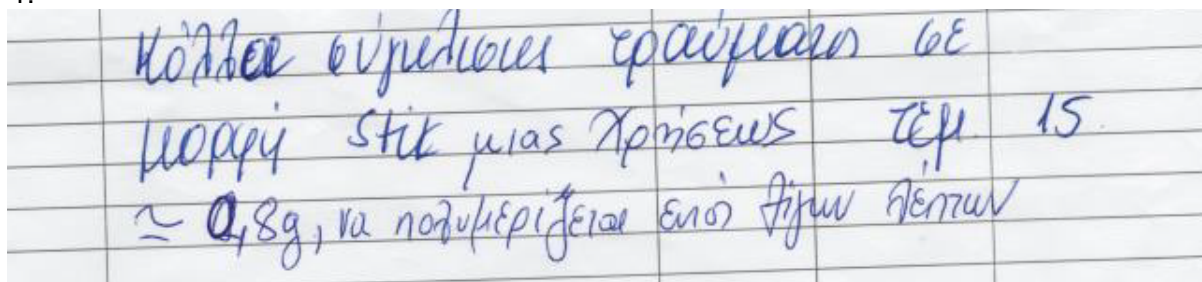 Κόλλα σύγκλισης τραύματος σε
μορφή Stik μιας χρήσεως τεμ. 15
≃ 0,8g, να πολυμερίζεται εντός λίγων λεπτών